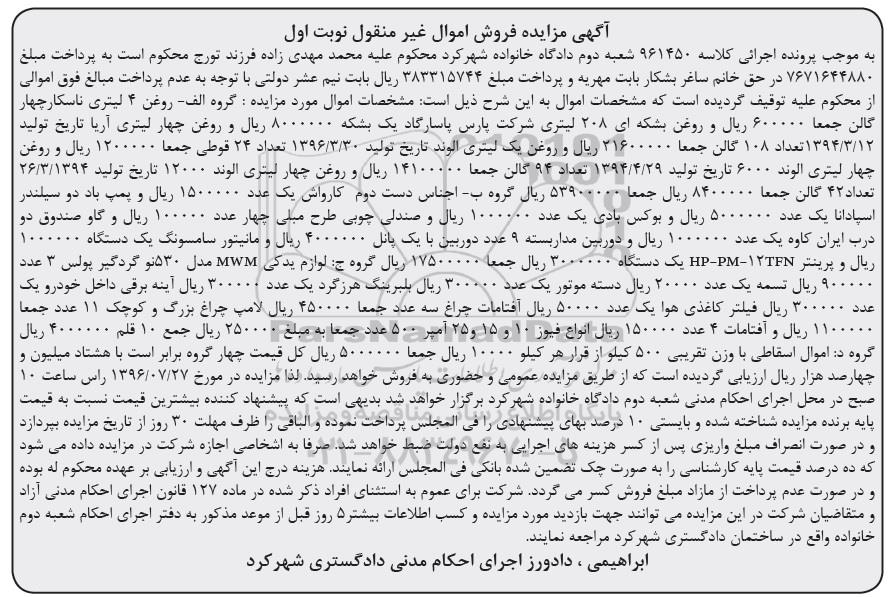 آگهی مزایده فروش اموال غیر منقول نوبت اول
به موجب پرونده اجرائی کلاسه ۹۶۱۴۵۰ شعبه دوم دادگاه خانواده شهرکرد محکوم علیه محمد مهدی زاده فرزند تورج محکوم است به پرداخت مبلغ
۷۶۷۱۶۴۴۸۸۰ در حق خانم ساغر بشکار بابت مهریه و پرداخت مبلغ ۳۸۳۳۱۵۷۴۴ ریال بابت نیم عشر دولتی با توجه به عدم پرداخت مبالغ فوق اموالی
از محکوم علیه توقیف گردیده است که مشخصات اموال به این شرح ذیل است: مشخصات اموال مورد مزایده : گروه الف- روغن ۴ لیتری ناسکارچهار
گالن جمعا ۶۰۰۰۰۰ ریال و روغن بشکه ای ۲۰۸ لیتری شرکت پارس پاسارگاد یک بشکه ۸۰۰۰۰۰۰ ریال و روغن چهار لیتری آریا تاریخ تولید
۱۳۹۴/۳/۱۲تعداد ۱۰۸ گالن جمعا ۲۱۶۰۰۰۰۰ ریال و روغن یک لیتری الوند تاریخ تولید ۱۳۹۶/۳/۳۰ تعداد ۲۴ قوطی جمعا ۱۲۰۰۰۰۰ ریال و روغن
چهار لیتری الوند ۶۰۰۰ تاریخ تولید ۱۳۹۴/۴/۲۹ تعداد ۹۴ گالن جمعا ۱۴۱۰۰۰۰۰ ریال و روغن چهار لیتری الوند ۱۲۰۰۰ تاریخ تولید ۲۶/۳/۱۳۹۴
تعداد۴۲ گالن جمعا ۸۴۰۰۰۰۰ ریال جمعا ۵۳۹۰۰۰۰۰ ریال گروه ب- اجناس دست دوم کارواش یک عدد ۱۵۰۰۰۰۰ ریال و پمپ باد دو سیلندر
اسپادانا یک عدد ۵۰۰۰۰۰۰ ریال و بوکس بادی یک عدد ۱۰۰۰۰۰۰ ریال و صندلی چوبی طرح مبلی چهار عدد ۱۰۰۰۰۰ ریال و گاو صندوق دو
درب ایران کاوه یک عدد ۱۰۰۰۰۰۰ ریال و دوربین مداربسته ۹ عدد دوربین با یک پانل ۴۰۰۰۰۰۰ ریال و مانیتور سامسونگ یک دستگاه ۱۰۰۰۰۰۰
ریال و پرینتر HP-PM-۱۲TFN یک دستگاه ۳۰۰۰۰۰۰ ریال جمعا ۱۷۵۰۰۰۰۰ ریال گروه ج: لوازم یدکی MWM مدل ۵۳۰نو گردگیر پولس ۳ عدد
۹۰۰۰۰۰ ریال تسمه یک عدد ۲۰۰۰۰ ریال دسته موتور یک عدد ۳۰۰۰۰۰ ریال بلبرینگ هرزگرد یک عدد ۳۰۰۰۰۰ ریال آینه برقی داخل خودرو یک
عدد ۳۰۰۰۰۰ ریال فیلتر کاغذی هوا یک عدد ۵۰۰۰۰ ریال آفتامات چراغ سه عدد جمعا ۴۵۰۰۰۰ ریال لامپ چراغ بزرگ و کوچک ۱۱ عدد جمعا
۱۱۰۰۰۰۰ ریال و آفتامات ۴ عدد ۱۵۰۰۰۰ ریال انواع فیوز ۱۰و ۱۵ و۲۵ آمپر ۵۰۰ عدد جمعا به مبلغ ۲۵۰۰۰۰ ریال جمع ۱۰ قلم ۴۰۰۰۰۰۰ ریال
گروه د: اموال اسقاطی با وزن تقریبی ۵۰۰ کیلو از قرار هر کیلو ۱۰۰۰۰ ریال جمعا ۵۰۰۰۰۰۰ ریال کل قیمت چهار گروه برابر است با هشتاد میلیون و
چهارصد هزار ریال ارزیابی گردیده است که از طریق مزایده عمومی و حضوری به فروش خواهد رسید. لذا مزایده در مورخ ۱۳۹۶/۰۷/۲۷ راس ساعت ۱۰
صبح در محل اجرای احکام مدنی شعبه دوم دادگاه خانواده شهرکرد برگزار خواهد شد بدیهی است که پیشنهاد کننده بیشترین قیمت نسبت به قیمت
پایه برنده مزایده شناخته شده و بایستی ۱۰ درصد بهای پیشنهادی را فی المجلس پرداخت نموده و الباقی را ظرف مهلت ۳۰ روز از تاریخ مزایده بپردازد
و در صورت انصراف مبلغ واریزی پس از کسر هزینه های اجرایی به نفع دولت ضبط خواهد شد. صرفا به اشخاصی اجازه شرکت در مزایده داده می شود
که ده درصد قیمت پایه کارشناسی را به صورت چک تضمین شده بانکی فی المجلس ارائه نمایند. هزینه درج این آگهی و ارزیابی بر عهده محکوم له بوده
و در صورت عدم پرداخت از مازاد مبلغ فروش کسر می گردد. شرکت برای عموم به استثنای افراد ذکر شده در ماده ۱۲۷ قانون اجرای احکام مدنی آزاد
و متقاضیان شرکت در این مزایده می توانند جهت بازدید مورد مزایده و کسب اطلاعات بیشتر۵ روز قبل از موعد مذکور به دفتر اجرای احکام شعبه دوم
خانواده واقع در ساختمان دادگستری شهرکرد مراجعه نمایند.
ابراهیمی ، دادورز اجرای احکام مدنی دادگستری شهرکرد
ParsNamadData
پایگاه اطلاع رسانی مناقصه و مزایده
۰۲۱-۸۸۳۴۹۶۷۰-۵